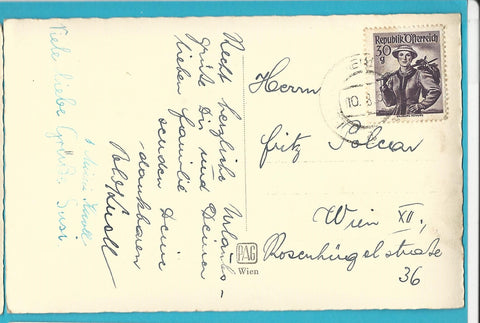 Viele liebe Grüße Susi
Recht herzliche Urlaubs-
grüße Dir und Deiner
lieben Familie
senden Deine
dankbaren
PAG
Wien
Republik Österreich
30
g
10. 8.
Herrn
Fritz
Wien XII.,
Rosenhügelstraße
36